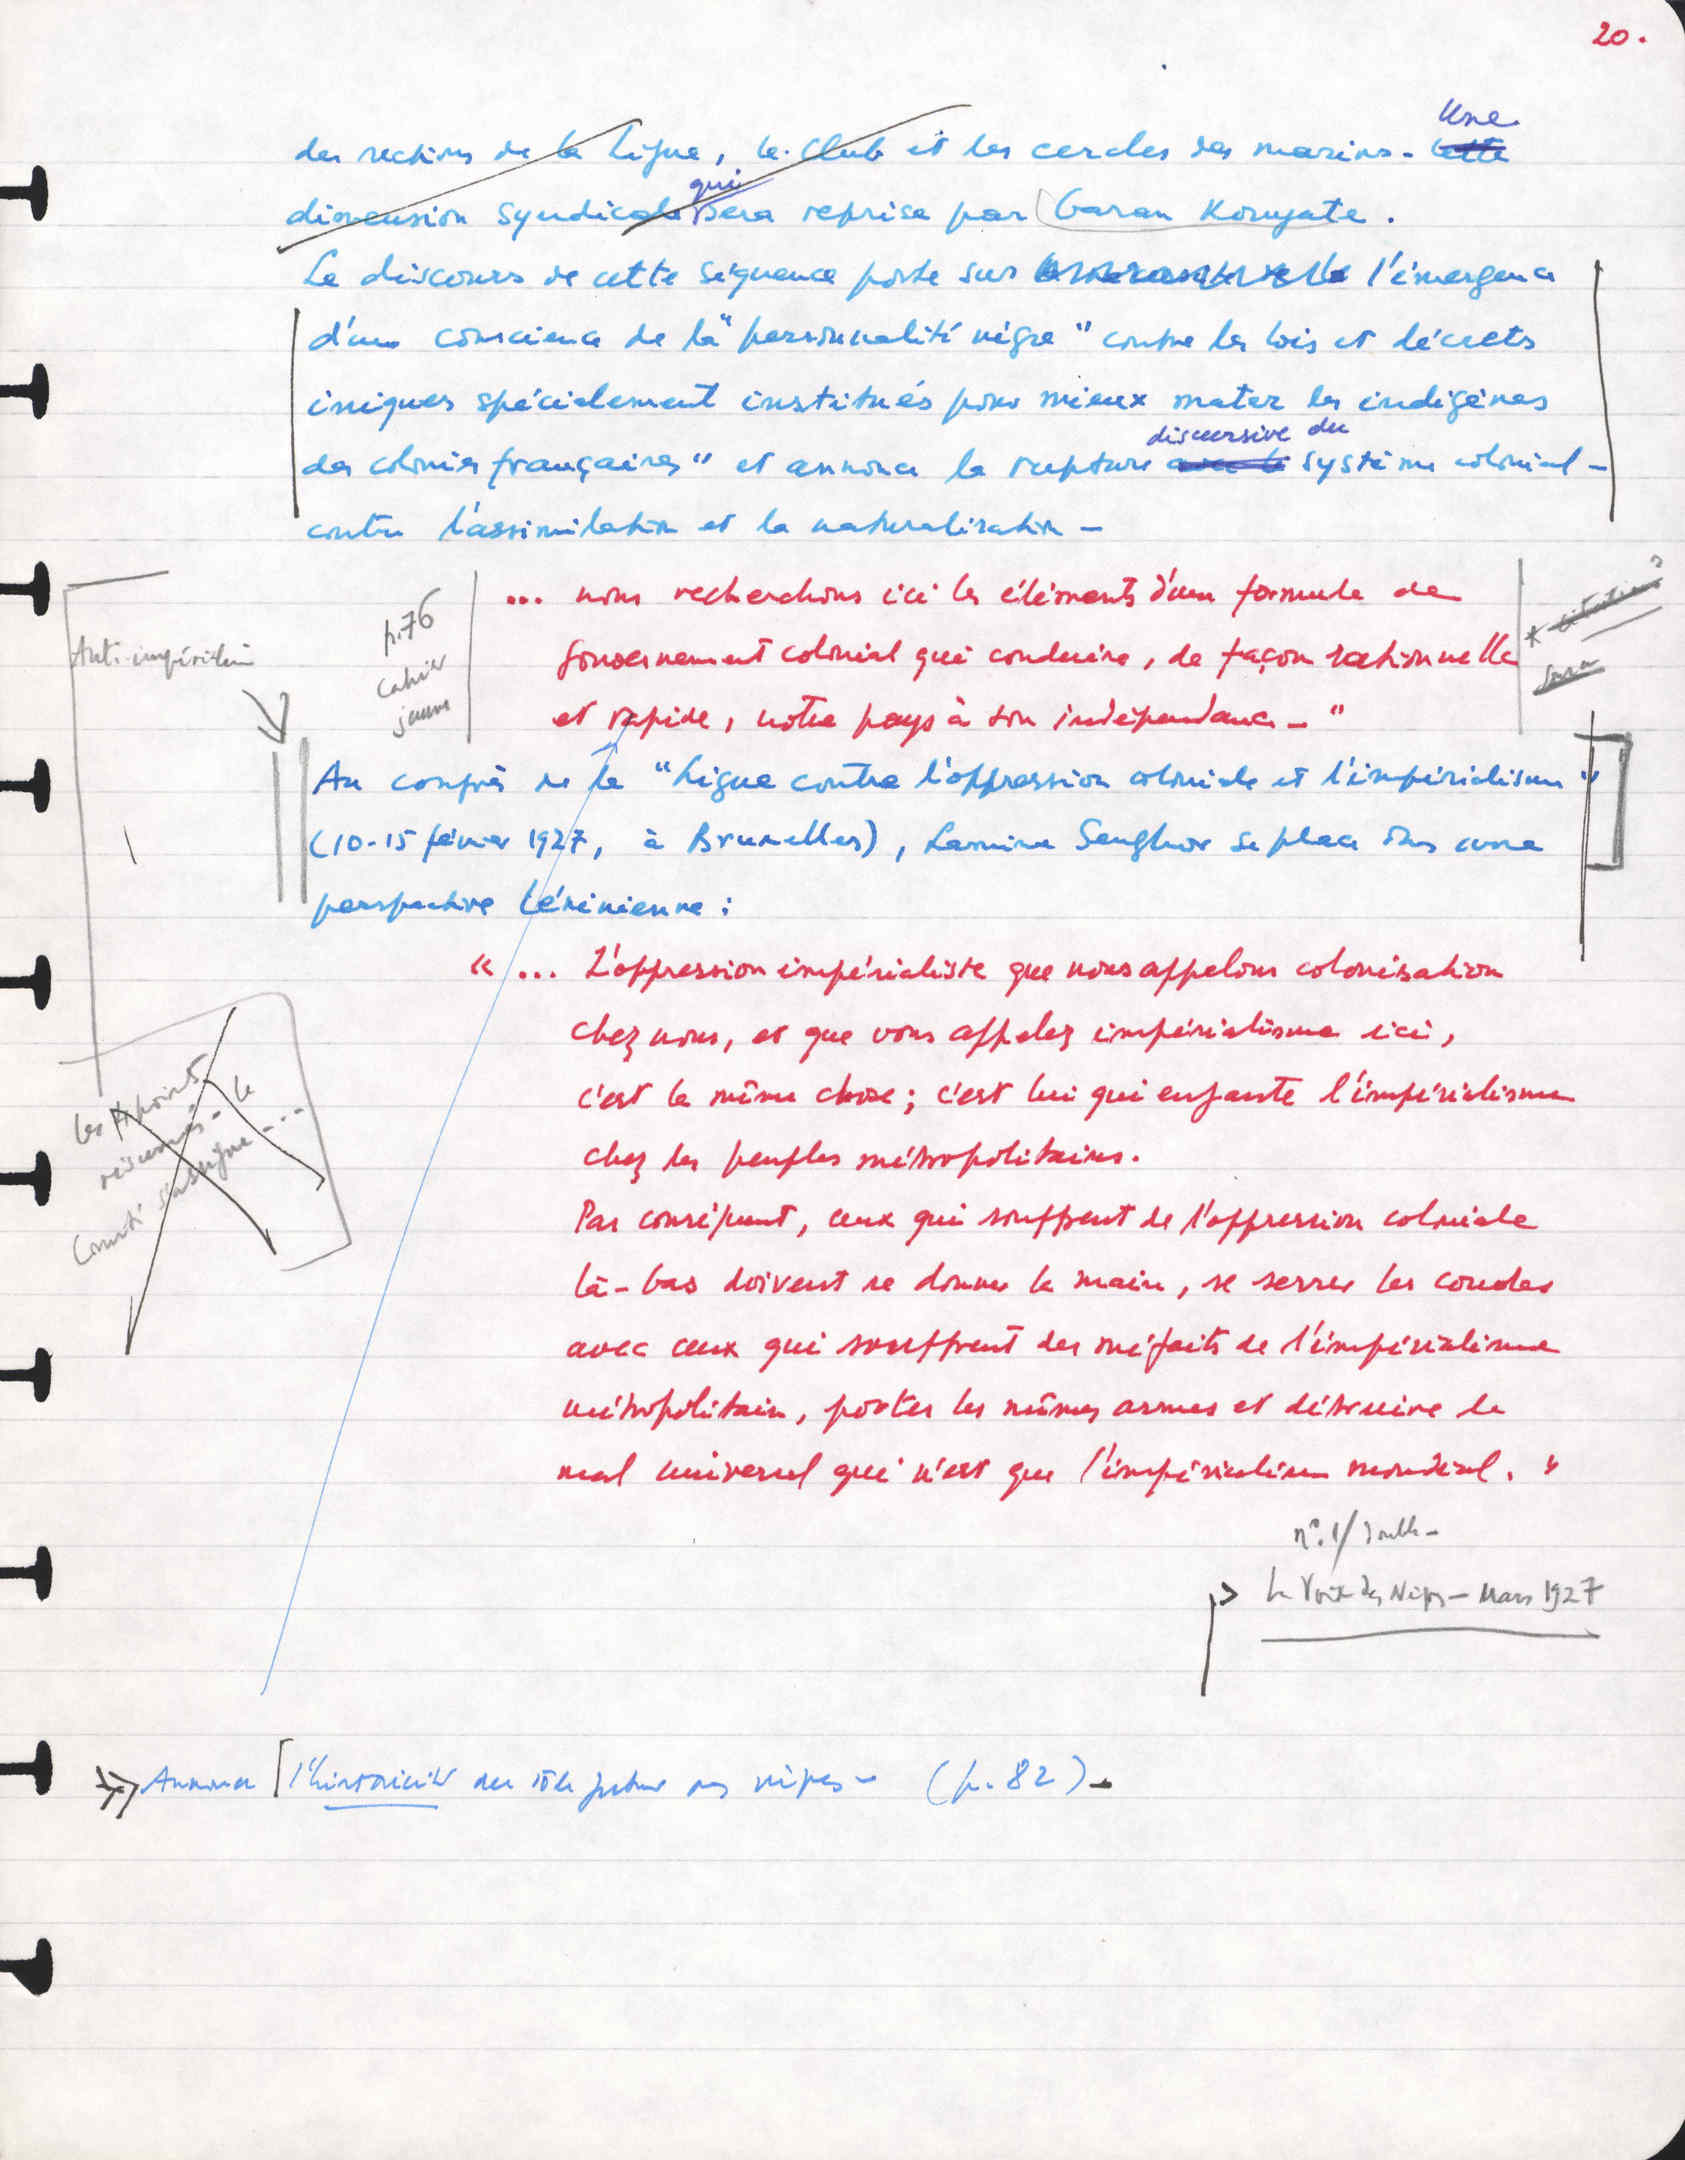 20.
Une
des sections de la Ligue, le Club et les cercles des marins - Cette
qui
dimension syndicale sera reprise par Garan Kouyate.
Le discours de cette séquence porte sur l'émergence
d'une conscience de la "personnalité nègre" contre les lois et décrets
iniques spécialement institués pour mieux mater les indigènes
discursive du
des colonies françaises" et annonce la rupture avec le système colonial -
contre l'assimilation et la naturalisation -
... nous recherchons ici les éléments d'une formule de
gouvernement colonial qui conduire, de façon rationnelle
et rapide, notre pays à son indépendance - "
p.76
cahier
jaune
* citations?
Anti-impérialisme
Au congrès de la "Ligue contre l'oppression coloniale et l'impérialisme"
(10-15 février 1927, à Bruxelles), Lamine Senghor se place dans une
perspective Léninienne :
« ... L'oppression impérialiste que nous appelons colonisation
chez nous, et que vous appelez impérialisme ici,
c'est la même chose ; c'est lui qui enfante l'impérialisme
chez les peuples métropolitains.
Par conséquent, ceux qui souffrent de l'oppression coloniale
là-bas doivent se donner la main, se serrer les coudes
avec ceux qui souffrent des méfaits de l'impérialisme
métropolitain, porter les mêmes armes et détruire le
mal universel qui n'est que l'impérialisme mondial. »
les points
résumés - le
Comité s'assigne - ...
n°.1/
La Voix des Nègres - Mars 1927
Annonce l'historicité du rôle futur des nègres - (p. 82) -